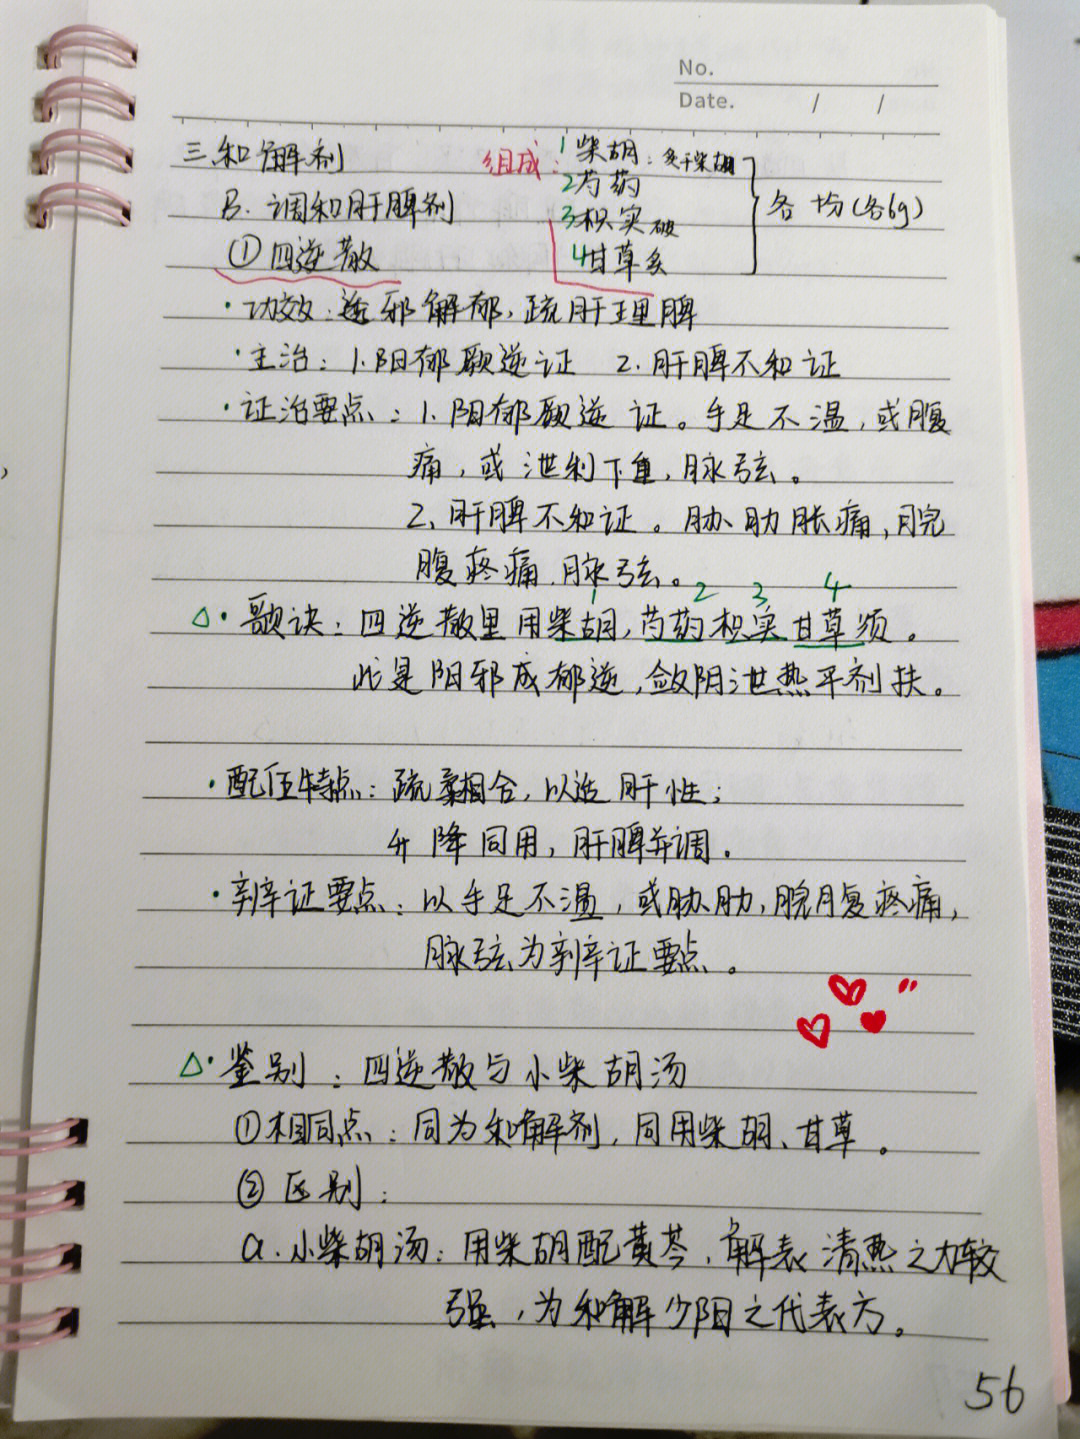 No.
Date. / /
三.和解剂
B. 调和肝脾剂
①四逆散
组成: 1柴胡:
2芍药
3枳实破
4甘草炙
各 均(各6g)
·功效:透邪解郁,疏肝理脾
·主治: 1.阳郁厥逆证 2.肝脾不和证
·证治要点: 1.阳郁厥逆 证。手足不温,或腹
痛,或泄利下重,脉弦。
2、肝脾不和证。胁肋胀痛,脘
腹疼痛.脉弦。
1 2 3 4
△·歌诀:四逆散里用柴胡,芍药枳实甘草须。
此是阳邪成郁逆,敛阴泄热平剂扶。
·配伍特点:疏柔相合,以适肝性;
升降同用,肝脾并调.
·辨证要点:以手足不温,或胁肋,脘腹疼痛,
脉弦为辨证要点。
△·鉴别:四逆散与小柴胡汤
①相同点:同为和解剂,同用柴胡、甘草。
②区别:
a.小柴胡汤:用柴胡配黄芩,解表清热之力较
强,为和解少阳之代表方。
56